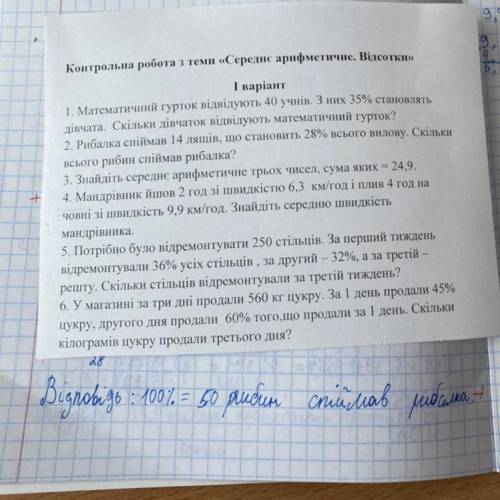 Контрольна робота з теми «Середнє арифметичне. Відсотки»
І варіант
1. Математичний гурток відвідують 40 учнів. З них 35% становлять
дівчата. Скільки дівчаток відвідують математичний гурток?
2. Рибалка спіймав 14 лящів, що становить 28% всього вилову. Скільки
всього рибин спіймав рибалка?
3. Знайдіть середнє арифметичне трьох чисел, сума яких = 24,9.
4. Мандрівник йшов 2 год зі швидкістю 6,3 км/год і плив 4 год на
човні зі швидкість 9,9 км/год. Знайдіть середню швидкість
мандрівника.
5. Потрібно було відремонтувати 250 стільців. За перший тиждень
відремонтували 36% усіх стільців , за другий – 32%, а за третій –
решту. Скільки стільців відремонтували за третій тиждень?
6. У магазині за три дні продали 560 кг цукру. За 1 день продали 45%
цукру, другого дня продали 60% того,що продали за 1 день. Скільки
кілограмів цукру продали третього дня?
28
Відповідь : 100% = 50 рибин спіймав рибалка.+